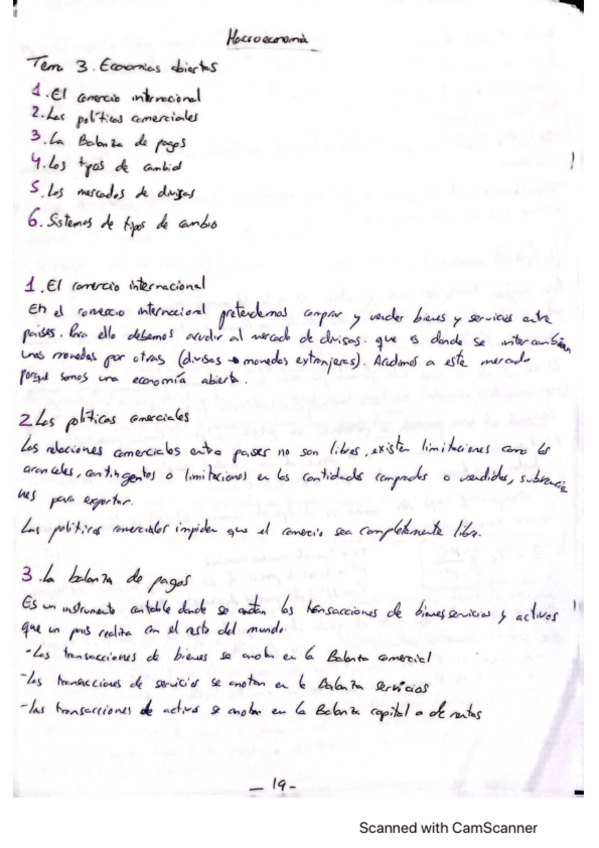 Macroeconomía
Tema 3. Economías abiertas
1. El comercio internacional
2. Las políticas comerciales
3. La Balanza de pagos
4. Los tipos de cambio
5. Los mercados de divisas
6. Sistemas de tipos de cambio
1. El comercio internacional
En el comercio internacional pretendemos comprar y vender bienes y servicios entre
países. Para ello debemos acudir al mercado de divisas que es donde se intercambian
unas monedas por otras (divisas → monedas extranjeras). Acudimos a este mercado
porque somos una economía abierta.
2. Las políticas comerciales
Las relaciones comerciales entre países no son libres, existen limitaciones como los
aranceles, contingentes o limitaciones en las cantidades compradas o vendidas, subvencio
nes para exportar.
Las políticas comerciales impiden que el comercio sea completamente libre.
3. La balanza de pagos
Es un instrumento contable donde se anotan las transacciones de bienes servicios y activos
que un país realiza con el resto del mundo.
-Las transacciones de bienes se anotan en la Balanza comercial
-Las transacciones de servicios se anotan en la Balanza servicios
-Las transacciones de activos se anotan en la Balanza capital o de rentas
- 19 -
Scanned with CamScanner